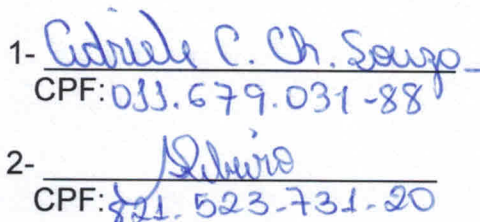 1- Cidriele C. Ch. Souza
CPF: 011.679.031-88
2- Ribeiro
CPF: 821.523.731-20